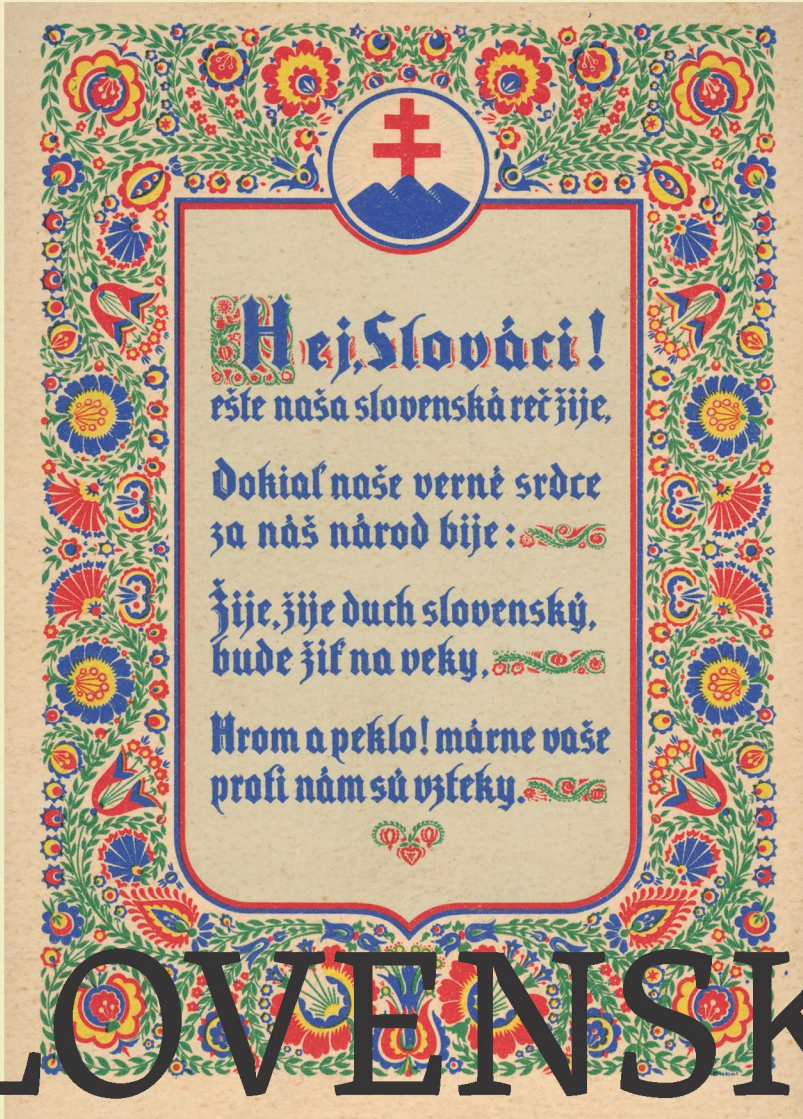 Hej, Slováci!
ešte naša slovenská reč žije,
Dokiaľ naše verné srdce
za náš národ bije:
Žije, žije duch slovenský,
bude žiť na veky,
Hrom a peklo! márne vaše
proti nám sú vzteky.
LOVENSK